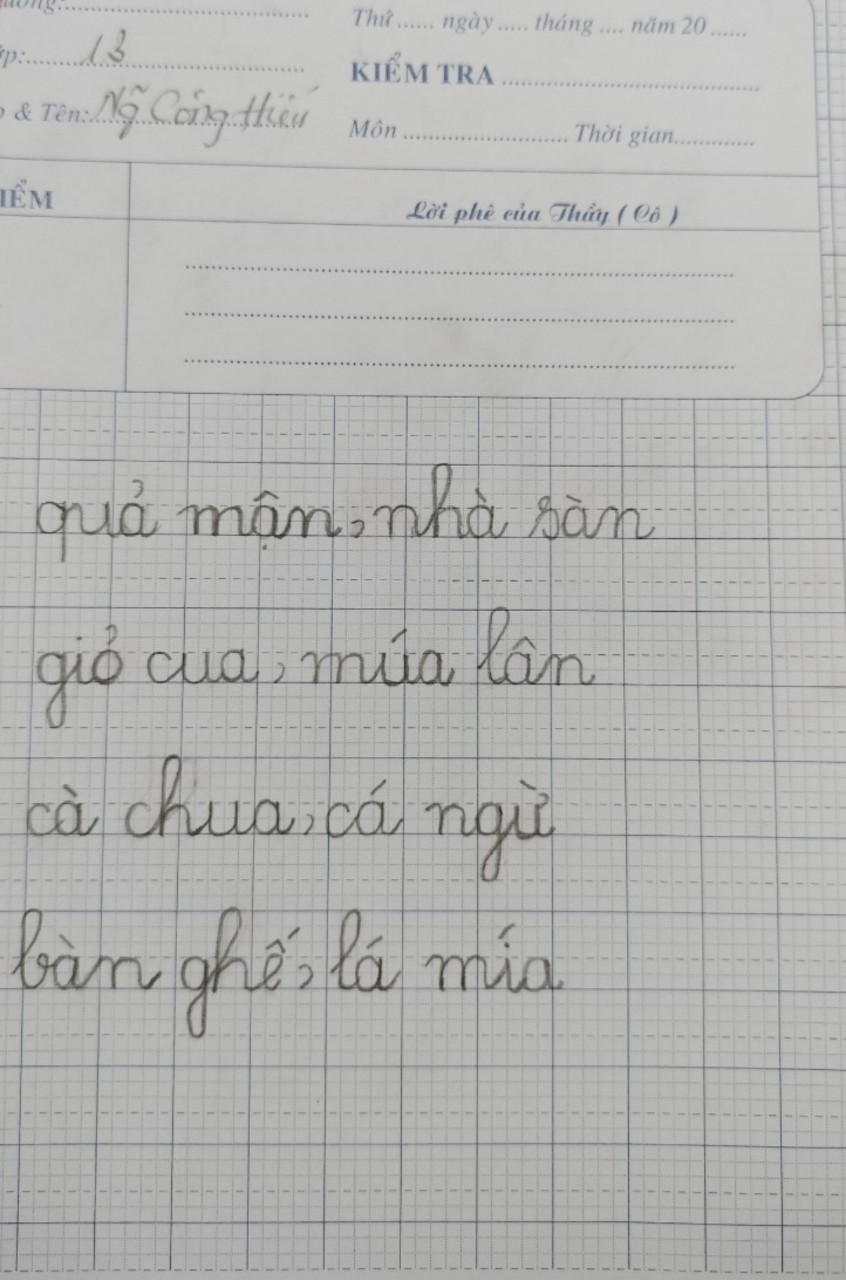 Thứ ...... ngày ..... tháng .... năm 20 ......
13
KIỂM TRA
& Tên: Ng Công Hiếu
Môn ........................ Thời gian............
Lời phê của Thầy ( Cô )
quả mận, nhà sàn
giỏ cua, múa lân
cà chua, cá ngừ
bàn ghế, lá mía